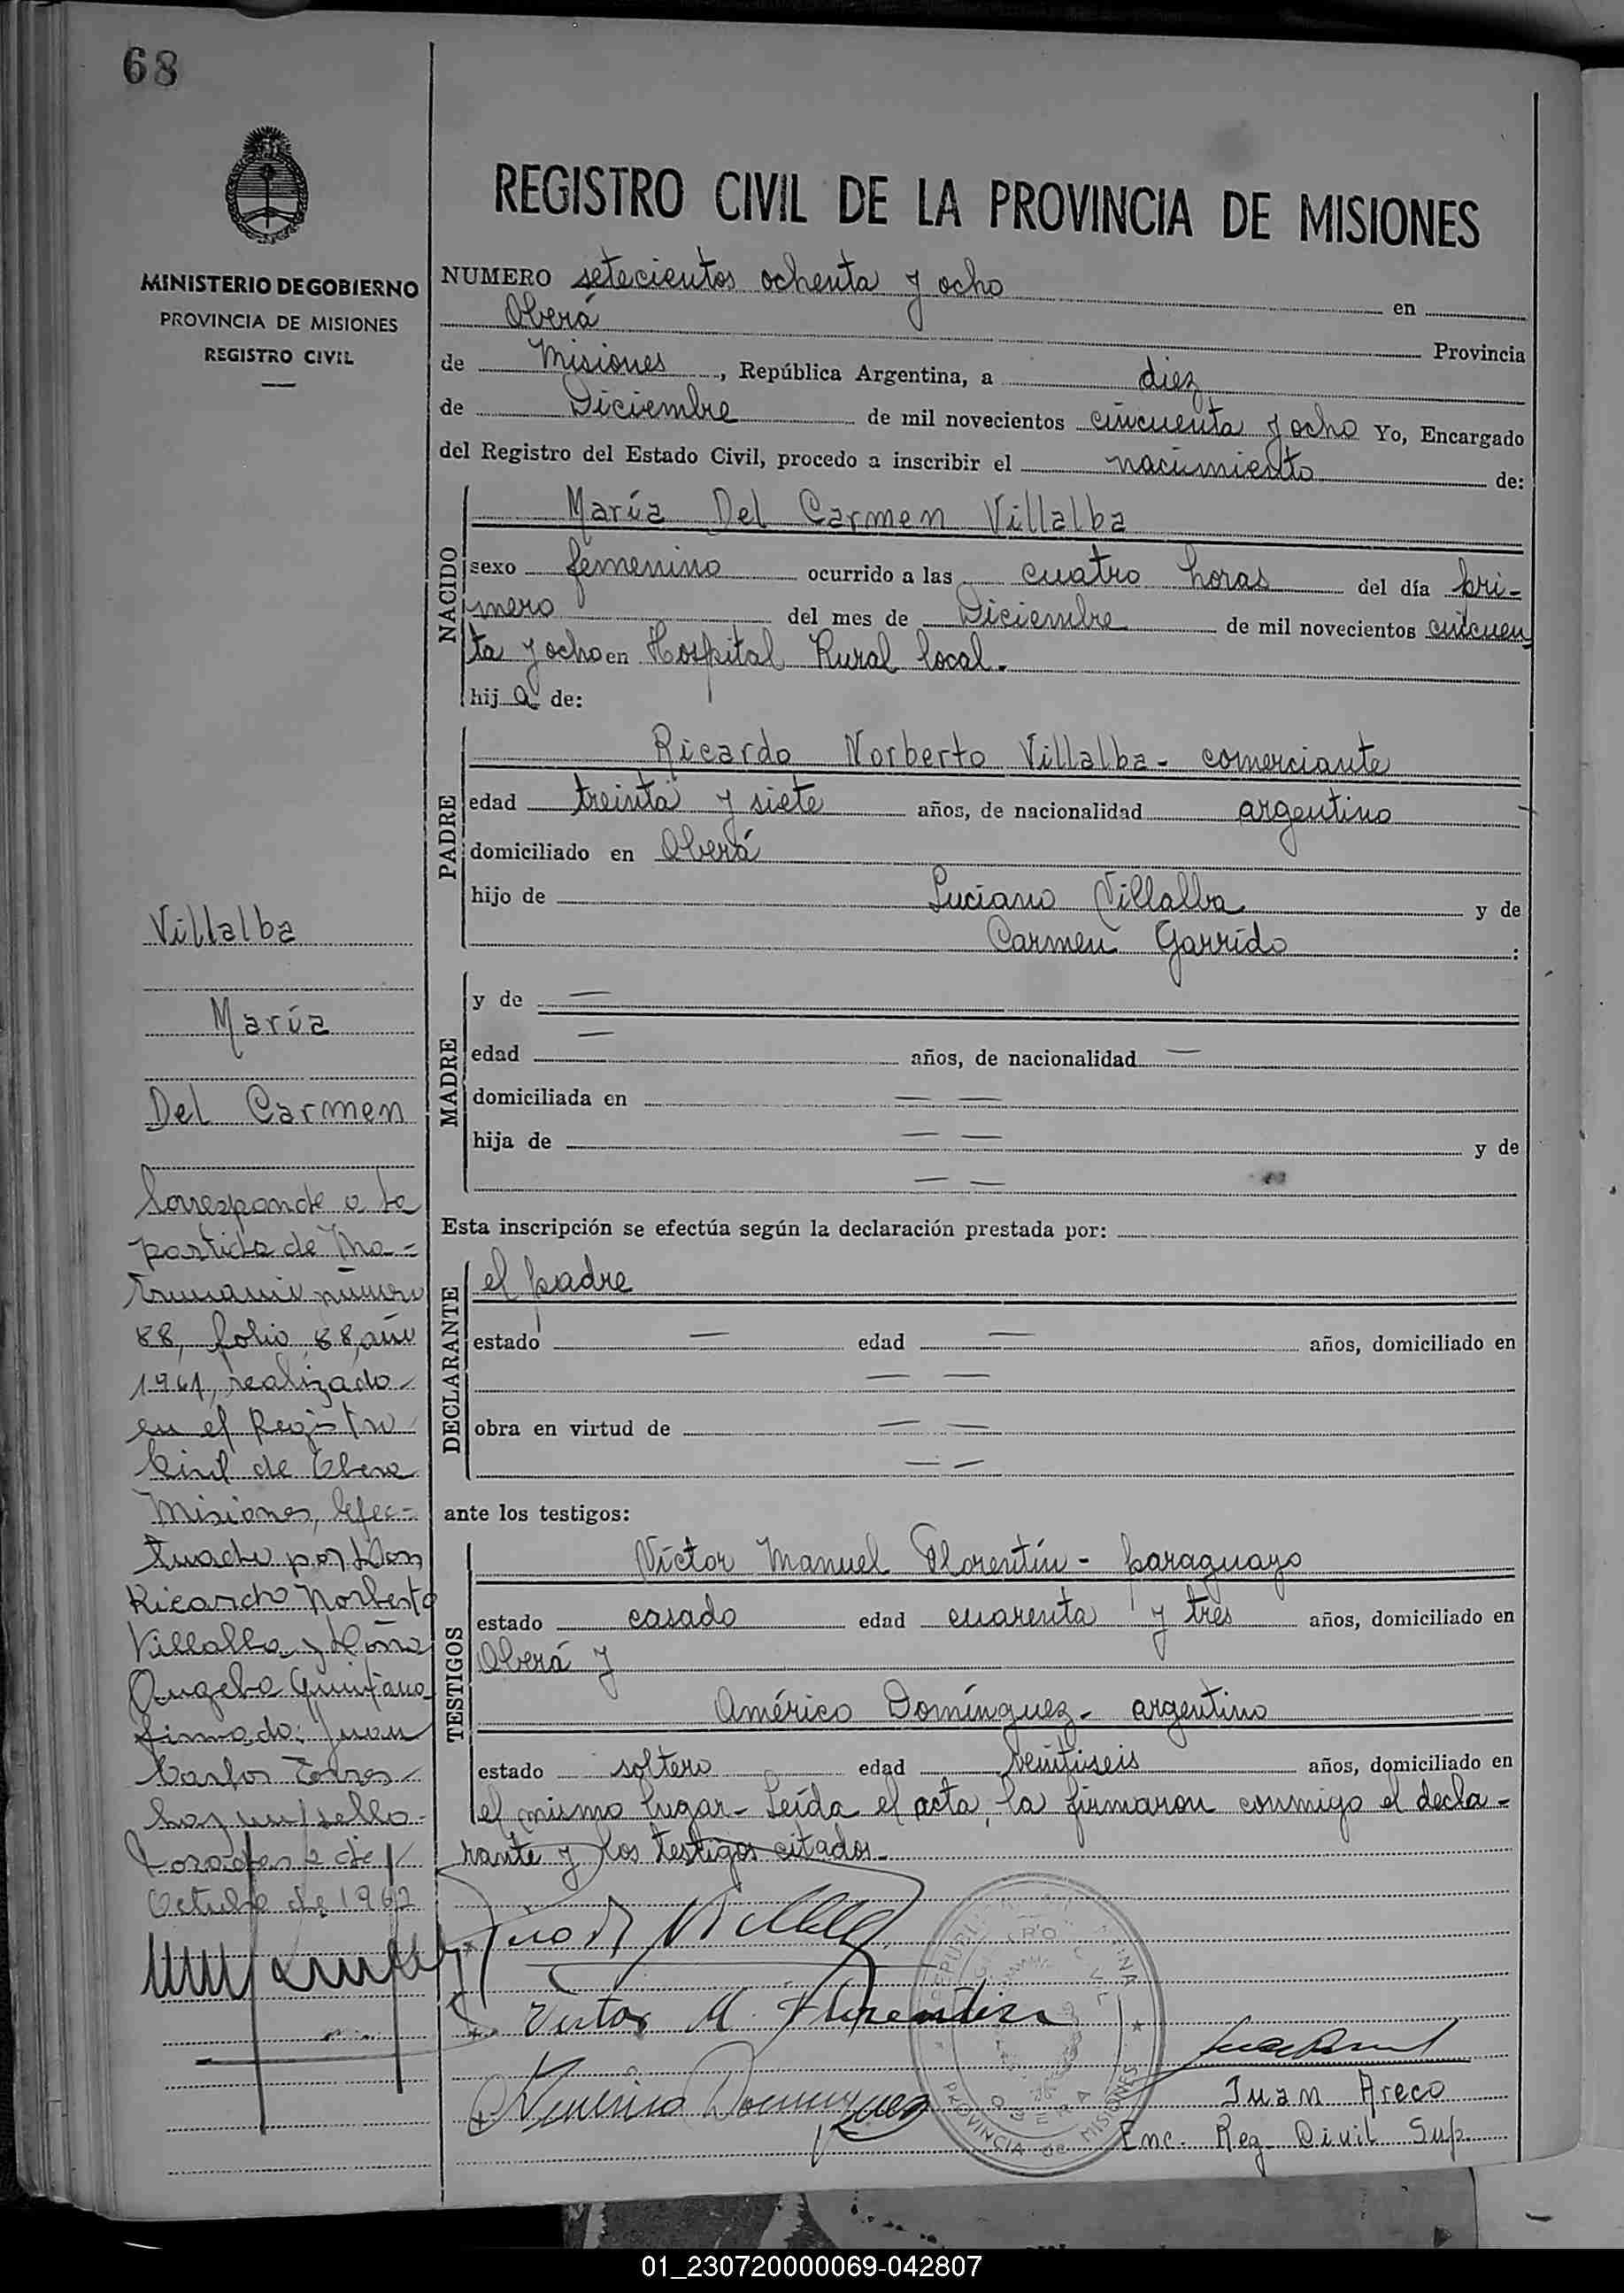 68
MINISTERIO DE GOBIERNO
PROVINCIA DE MISIONES
REGISTRO CIVIL
REGISTRO CIVIL DE LA PROVINCIA DE MISIONES
NUMERO setecientos ochenta y ocho en
Oberá Provincia
de Misiones, República Argentina, a diez
de Diciembre de mil novecientos cincuenta y ocho Yo, Encargado
del Registro del Estado Civil, procedo a inscribir el nacimiento de:
NACIDO
María Del Carmen Villalba
sexo femenino ocurrido a las cuatro horas del día pri-
mero del mes de Diciembre de mil novecientos cincuen
ta y ocho en Hospital Rural local.
hija de:
PADRE
Ricardo Norberto Villalba - comerciante
edad treinta y siete años, de nacionalidad argentino
domiciliado en Oberá
hijo de Luciano Villalba y de
Carmen Garrido :
MADRE
y de —
edad — años, de nacionalidad —
domiciliada en — —
hija de — — y de
— —
Esta inscripción se efectúa según la declaración prestada por:
DECLARANTE
el padre
estado — edad — años, domiciliado en
— —
obra en virtud de — —
— —
ante los testigos:
TESTIGOS
Víctor Manuel Florentín - paraguayo
estado casado edad cuarenta y tres años, domiciliado en
Oberá y
Américo Domínguez - argentino
estado soltero edad veintiseis años, domiciliado en
el mismo lugar - Leída el acta, la firmaron conmigo el decla-
rante y los testigos citados.
Villalba
María
Del Carmen
Corresponde a la
partida de Ma=
trimonio número
88, folio 88, año
1961, realizado
en el Registro
Civil de Obera
Misiones, efec=
tuado por Don
Ricardo Norberto
Villalba y Doña
Angela Quintana
firmado: Juan
Carlos Torres
hay un sello.
Posadas 2 de
Octubre de 1962
Victor M. Florentin
Américo Dominguez
Juan Areco
Enc. Reg. Civil Sup.
REGISTRO CIVIL
OBERA
PROVINCIA de MISIONES
01_230720000069-042807